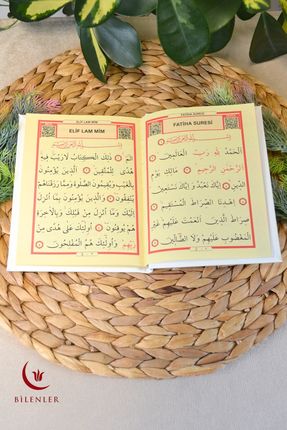 FATİHA SURESİ
FATİHA SURESİ
اَلْحَمْدُ لِلّٰهِ رَبِّ الْعَالَمِينَ
اَلرَّحْمٰنِ الرَّحِيمِ مَالِكِ يَوْمِ
الدِّينِ اِيَّاكَ نَعْبُدُ وَاِيَّاكَ نَسْتَعِينُ
اِهْدِنَا الصِّرَاطَ الْمُسْتَقِيمَ
صِرَاطَ الَّذِينَ اَنْعَمْتَ عَلَيْهِمْ غَيْرِ
الْمَغْضُوبِ عَلَيْهِمْ وَلَا الضَّالِّينَ
ELİF LAM MİM
ELİF LAM MİM
الٓمٓ ذٰلِكَ الْكِتَابُ لَارَيْبَ فِيهِ
هُدًى لِلْمُتَّقِينَ اَلَّذِينَ يُؤْمِنُونَ
بِالْغَيْبِ وَيُقِيمُونَ الصَّلٰوةَ وَمِمَّا رَزَقْنَاهُمْ
يُنْفِقُونَ وَالَّذِينَ يُؤْمِنُونَ بِمَا اُنْزِلَ
اِلَيْكَ وَمَا اُنْزِلَ مِنْ قَبْلِكَ وَبِالْاٰخِرَةِ
هُمْ يُوقِنُونَ اُولٰئِكَ عَلٰى هُدًى مِنْ
رَبِّهِمْ وَاُولٰئِكَ هُمُ الْمُفْلِحُونَ
BİLENLER